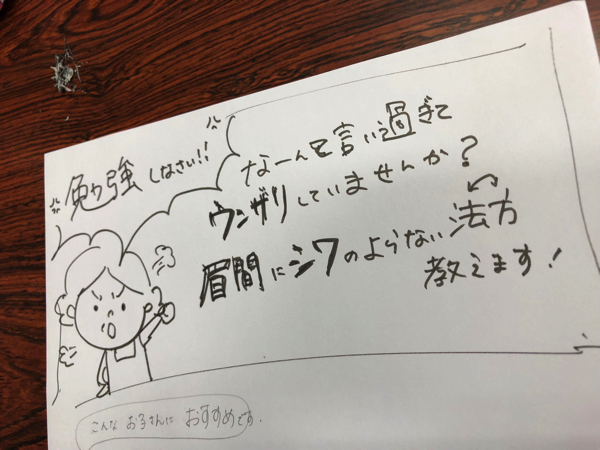 勉強しなさい!!
なーんて言い過ぎて
ウンザリしていませんか?
眉間にシワのよらない法方
教えます!
こんな お子さんに おすすめです.